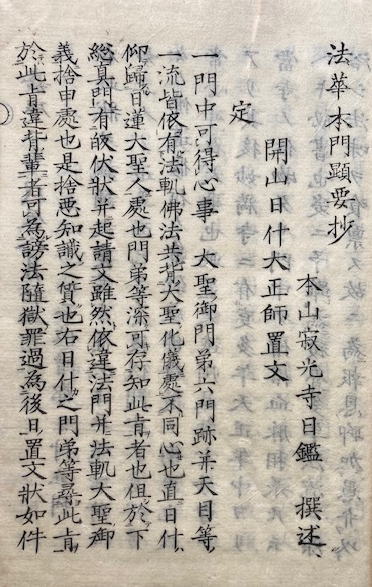 法華本門顕要抄
本山寂光寺日鑑　撰述
開山日什大正師置文
定
一門中可得心事　大聖御門弟六門跡并天目等
一流皆依有法軌佛法共背大聖化儀處不同心也直日什
仰歸日蓮大聖人處也門弟等深可存知此旨者也但於下
総真門有帰伏状并起請文雖然依違法門并法軌大聖御
義捨申處也是捨悪知識之質也右日什之門弟等尋此旨
於此旨違背輩者可為謗法隨獄罪過為後日置文状如件